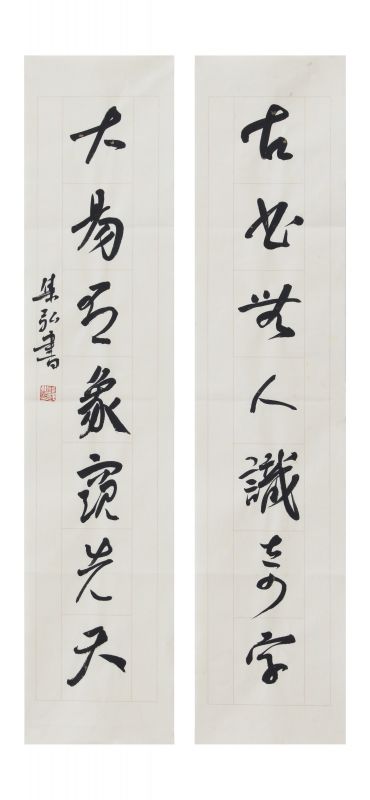 古书無人識奇字
大易有象窺先天
集弘書